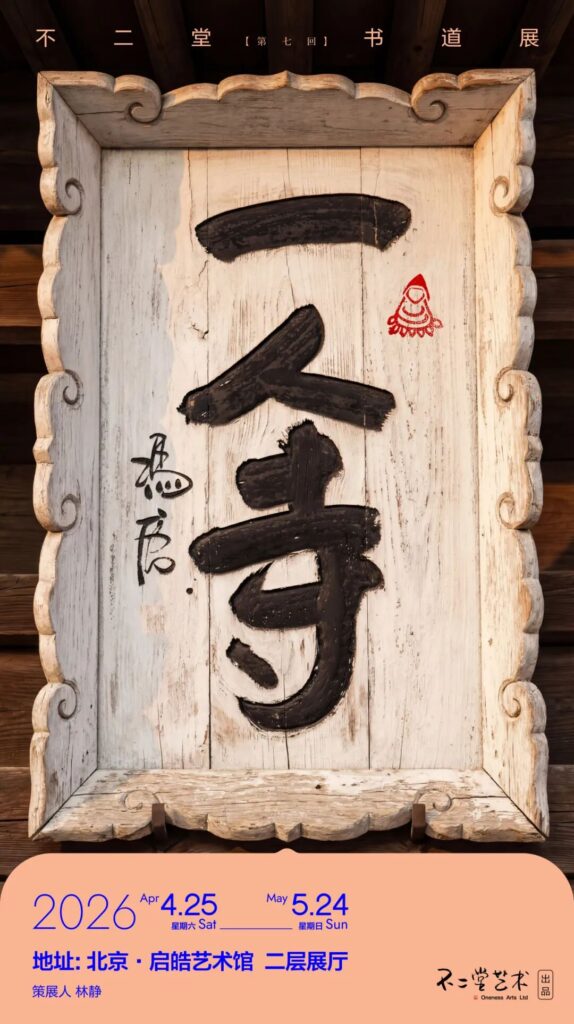 不二堂【第七回】书道展
一人寺
馮唐
2026 Apr 4.25 星期六 Sat May 5.24 星期日 Sun
地址: 北京·启皓艺术馆 二层展厅
策展人 林静
不二堂艺术 出品
Oneness Arts Ltd